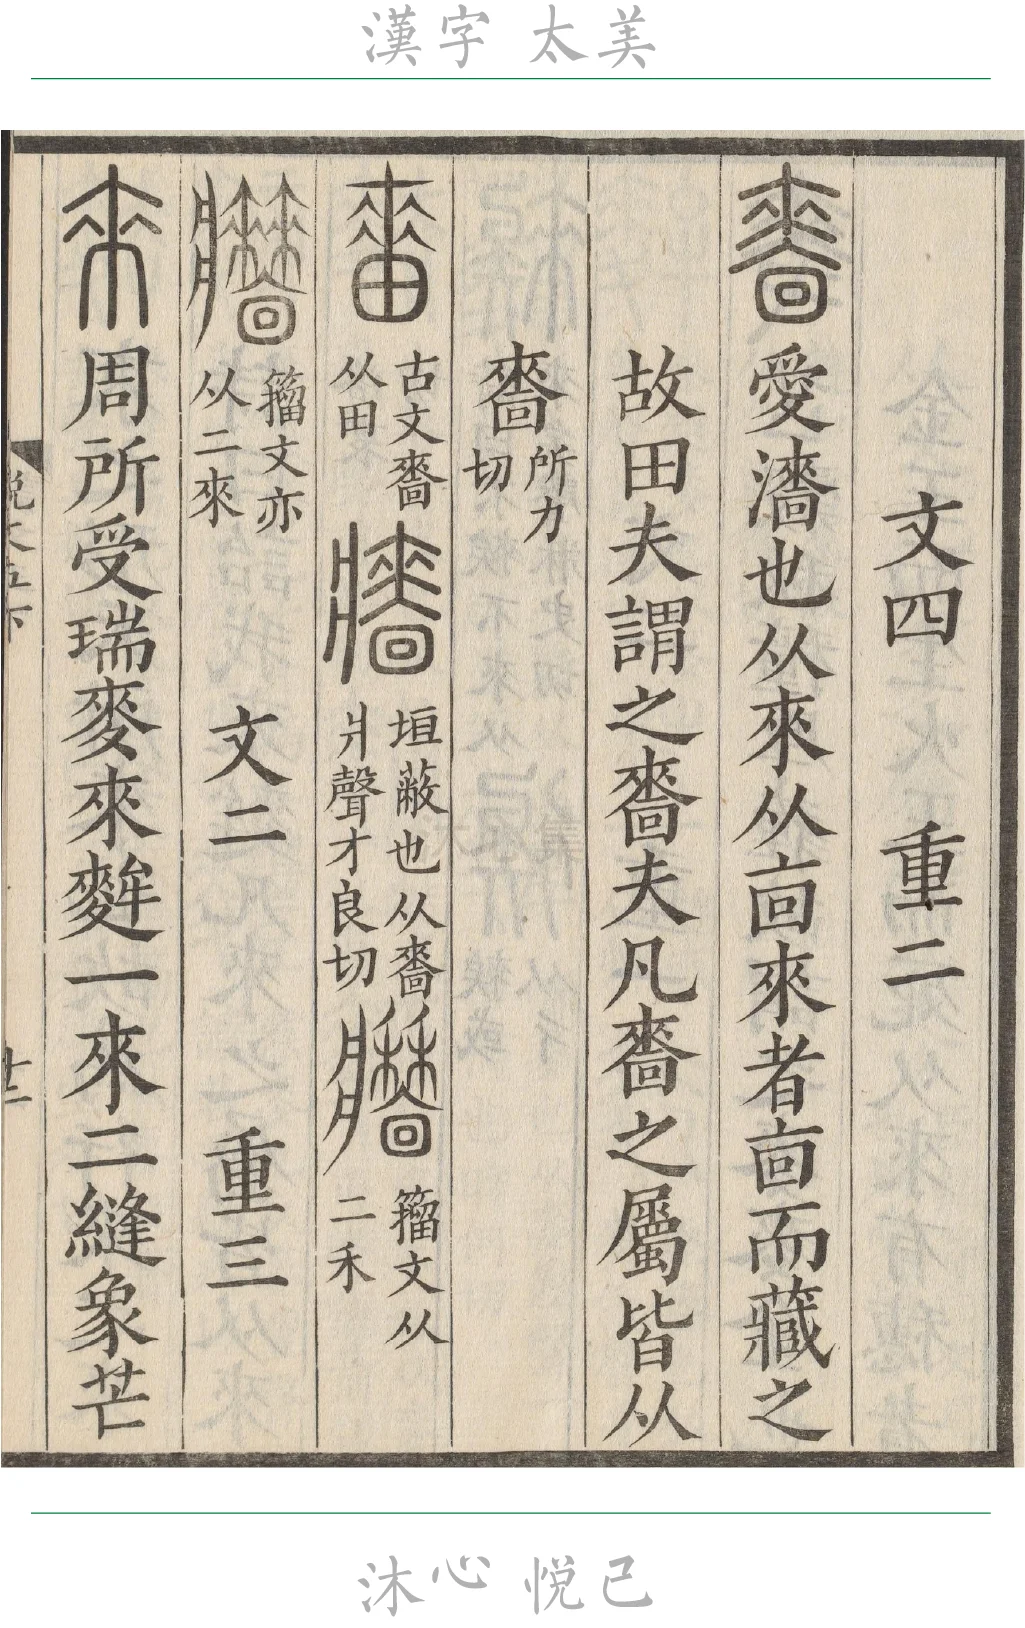 漢字 太美
文四 重二
嗇 愛濇也从來从㐭來者㐭而藏之
故田夫謂之嗇夫凡嗇之屬皆从
嗇 所力切
𤲸 古文嗇从田 牆 垣蔽也从嗇爿聲才良切 𤖧 籒文从二禾
𤖨 籒文亦从二來 文二 重三
來 周所受瑞麥來麰一來二縫象芒
說文五下 十二
沐心 悅己